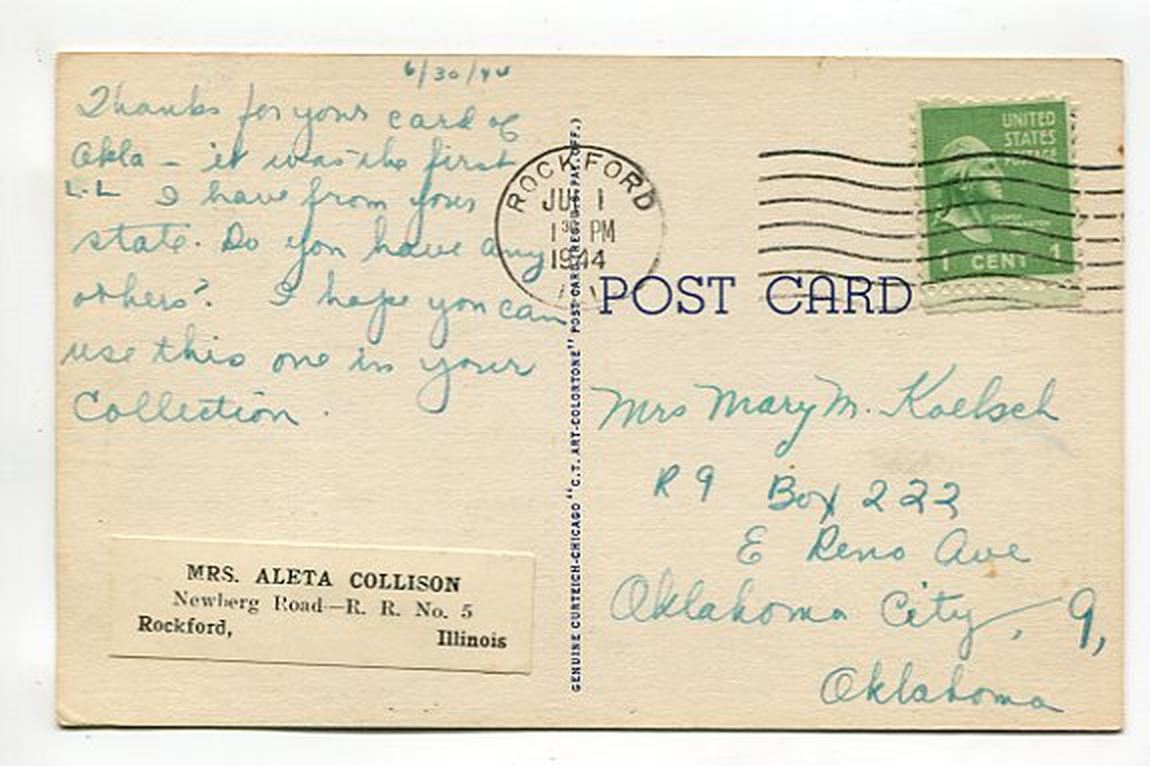 6/30/44
Thanks for your card of
Okla - it was the first
L.L I have from your
state. Do you have any
others? I hope you can
use this one in your
Collection.
MRS. ALETA COLLISON
Newberg Road—R. R. No. 5
Rockford, Illinois
GENUINE CURTEICH-CHICAGO "C.T. ART-COLORTONE" POST CARD (REG. U.S. PAT. OFF.)
ROCKFORD
JUL 1
1 30 PM
1944
UNITED
STATES
POSTAGE
1 CENT 1
POST CARD
Mrs Mary M. Koelsch
R 9 Box 222
E Reno Ave
Oklahoma City, 9,
Oklahoma